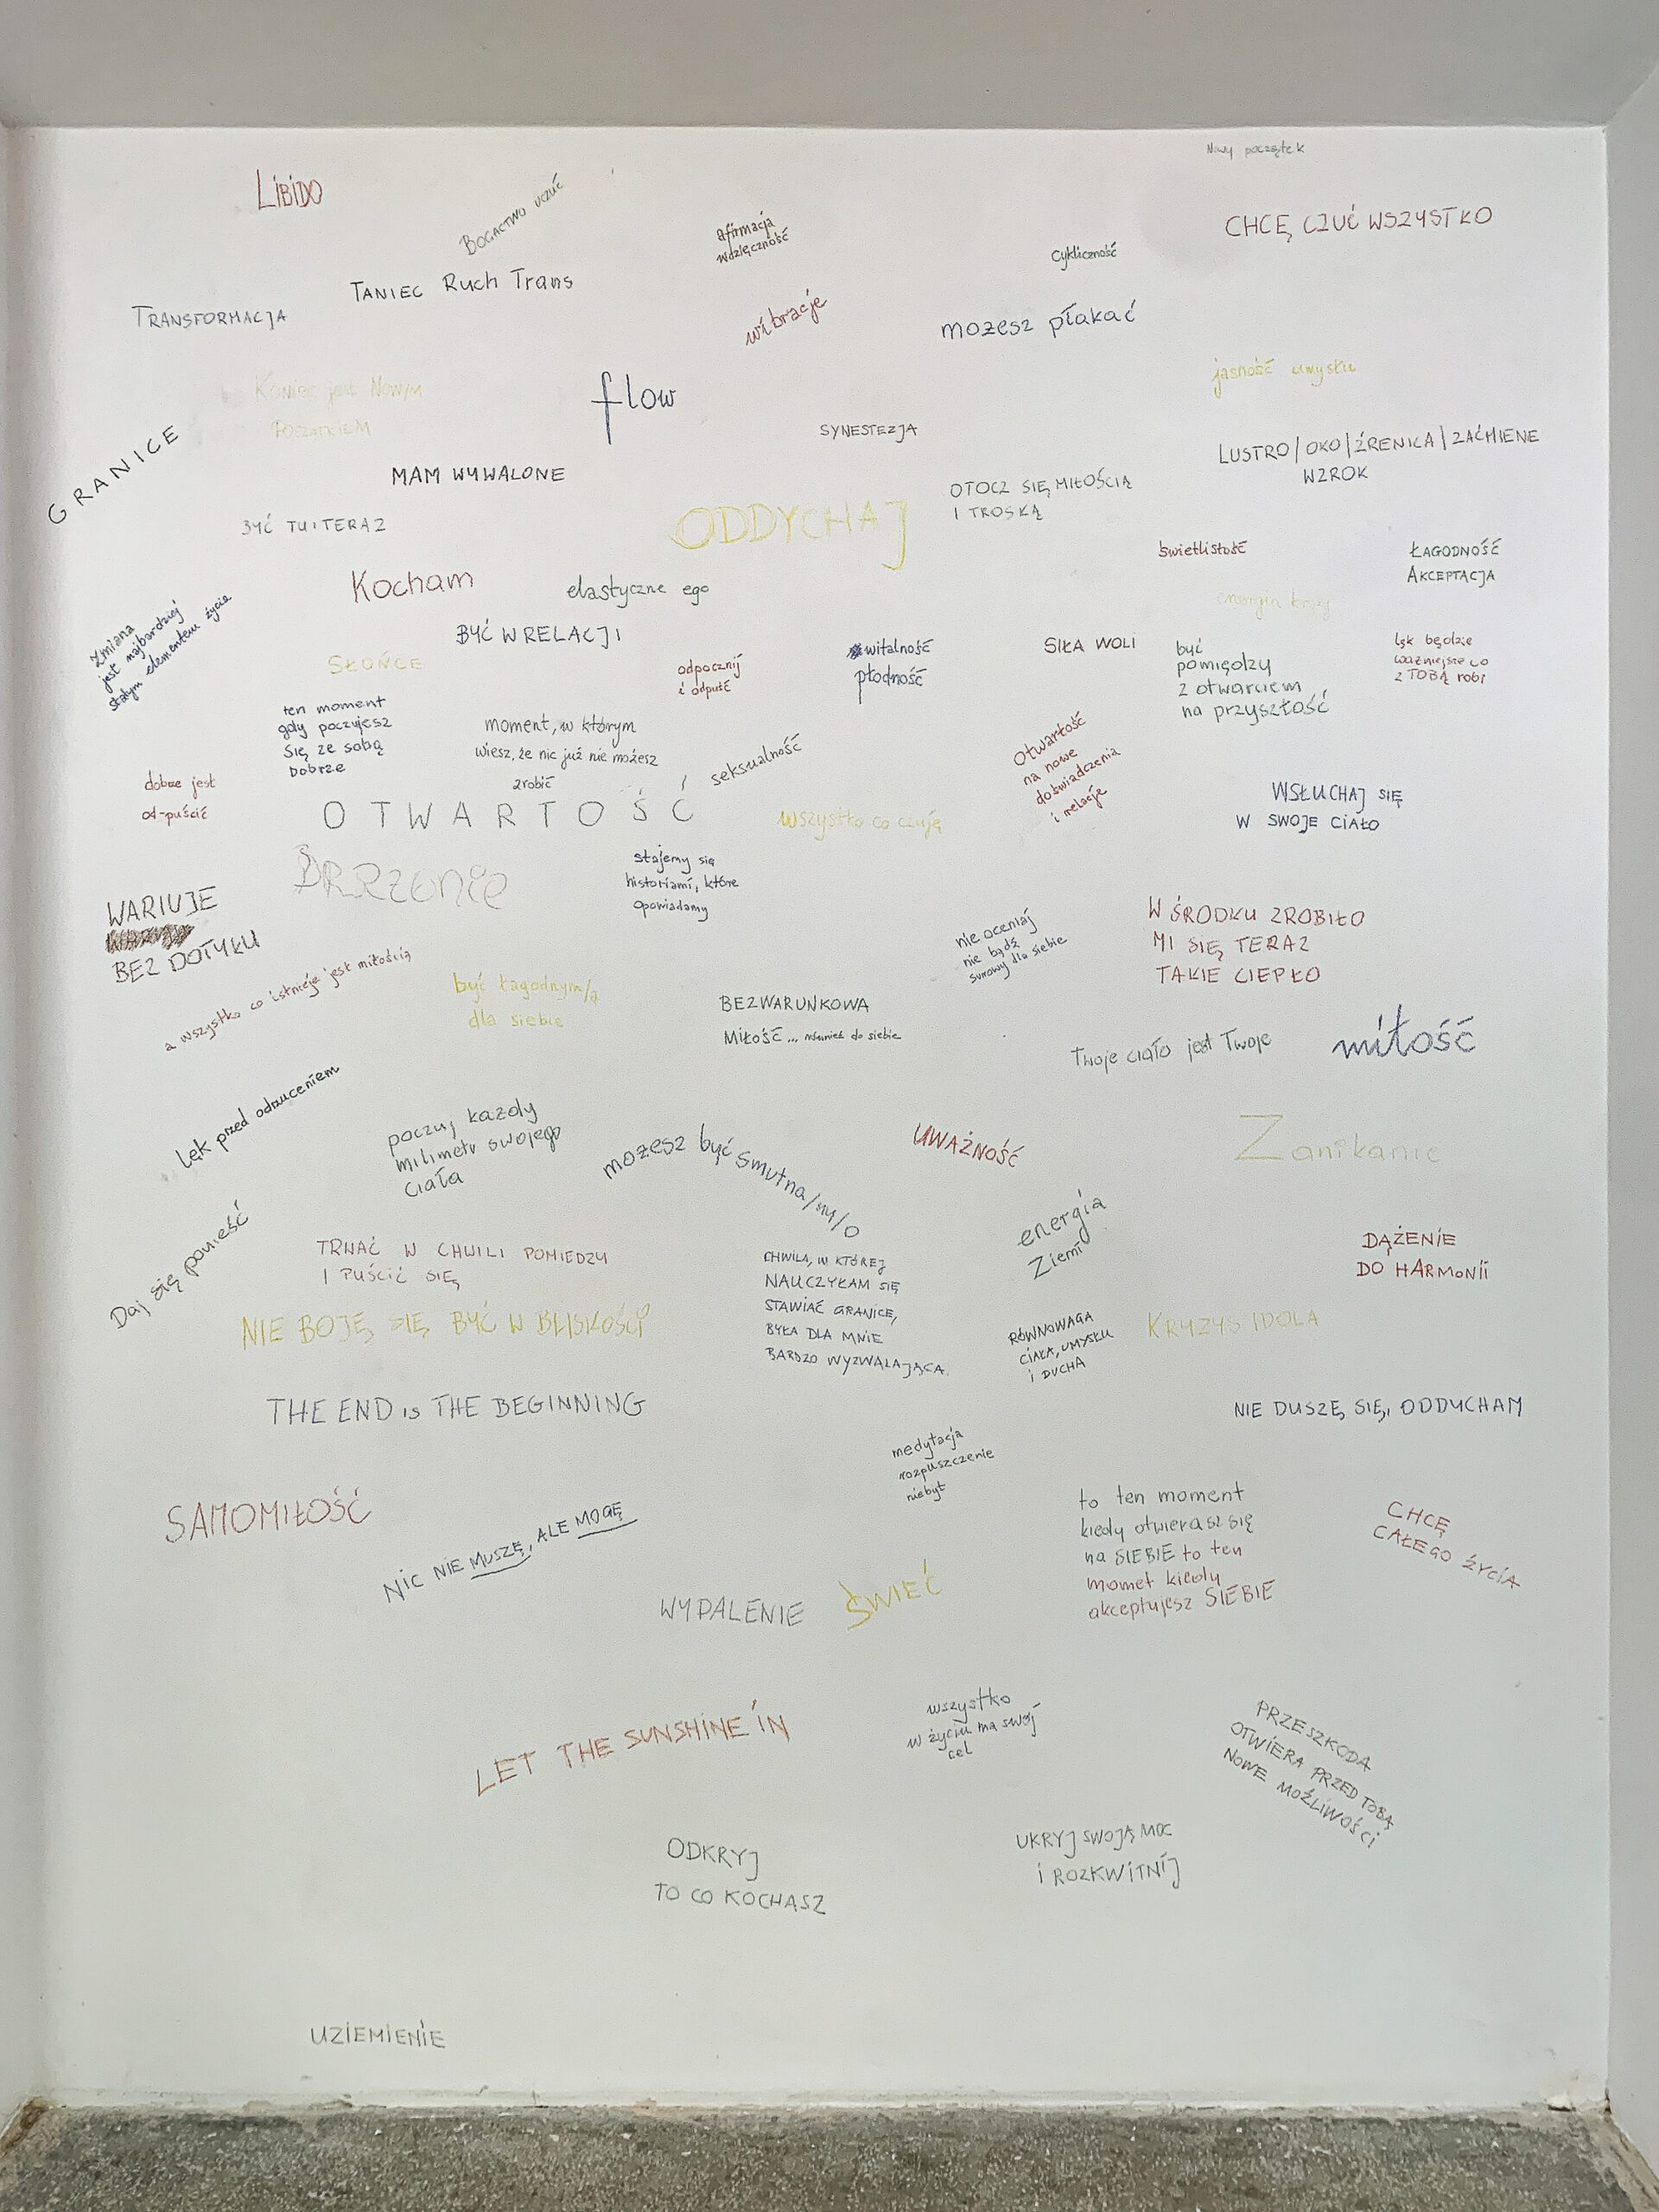 Nowy początek
LIBIDO
BOGACTWO UCZUĆ
afirmacja
wdzięczność
CHCĘ CZUĆ WSZYSTKO
Cykliczność
TANIEC Ruch Trans
TRANSFORMACJA
wibracje
możesz płakać
jasność umysłu
Koniec jest Nowym
POCZĄTKIEM
flow
SYNESTEZJA
GRANICE
LUSTRO/OKO/ŹRENICA/ZAĆMIENE
WZROK
MAM WYWALONE
OTOCZ SIĘ MIŁOŚCIĄ
I TROSKĄ
BYĆ TU I TERAZ
ODDYCHAJ
świetlistość
ŁAGODNOŚĆ
AKCEPTACJA
Kocham
elastyczne ego
energia
zmiana
jest najbardziej
stałym elementem życia
BYĆ W RELACJI
SŁOŃCE
odpocznij
i odpuść
witalność
płodność
SIŁA WOLI
być
pomiędzy
z otwarciem
na przyszłość
lęk będzie
ważniejsze co
z TOBĄ robi
ten moment
gdy poczujesz
się ze sobą
dobrze
moment, w którym
wiesz, że nic już nie możesz
zrobić
seksualność
Otwartość
na nowe
doświadczenia
i relacje
dobrze jest
od-puścić
OTWARTOŚĆ
wszystko co czuję
WSŁUCHAJ SIĘ
W SWOJE CIAŁO
BRZĘCZENIE
stajemy się
historiami, które
opowiadamy
WARIUJE
BEZ DOTYKU
nie oceniaj
nie bądź
surowy dla siebie
W ŚRODKU ZROBIŁO
MI SIĘ TERAZ
TAKIE CIEPŁO
a wszystko co istnieje jest miłością
być łagodnym/ą
dla siebie
BEZWARUNKOWA
MIŁOŚĆ... również do siebie
Twoje ciało jest Twoje
miłość
lęk przed odrzuceniem
poczuj każdy
milimetr swojego
ciała
możesz być smutna/ny/o
UWAŻNOŚĆ
Zanikanie
Daj się ponieść
energia
Ziemi
TRWAĆ W CHWILI POMIEDZY
I PUŚCIĆ SIĘ
CHWILA, W KTÓREJ
NAUCZYŁAM SIĘ
STAWIAĆ GRANICE,
BYŁA DLA MNIE
BARDZO WYZWALAJĄCA.
DĄŻENIE
DO HARMONII
NIE BOJĘ SIĘ BYĆ W BLISKOŚCI
RÓWNOWAGA
CIAŁA, UMYSŁU
i DUCHA
KRYZYS IDOLA
THE END is THE BEGINNING
NIE DUSZĘ SIĘ, ODDYCHAM
medytacja
rozpuszczenie
niebyt
SAMOMIŁOŚĆ
NIC NIE MUSZĘ, ALE MOGĘ
to ten moment
kiedy otwierasz się
na SIEBIE to ten
momet kiedy
akceptujesz SIEBIE
CHCĘ
CAŁEGO ŻYCIA
WYPALENIE
ŚWIEĆ
LET THE SUNSHINE IN
wszystko
w życiu ma swój
cel
PRZESZKODA
OTWIERA PRZED TOBĄ
NOWE MOŻLIWOŚCI
ODKRYJ
TO CO KOCHASZ
UKRYJ SWOJĄ MOC
i ROZKWITNIJ
UZIEMIENIE